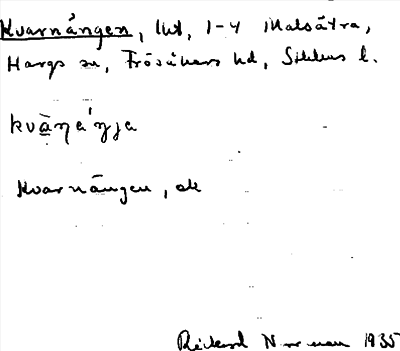 Kvarnängen, lht, 1-4 Malsätra,
Hargs sn, Frösåkers hd, Sthlms l.
kvàŋáŋja
Kvarnängen, åk
Rickard Norman 1935